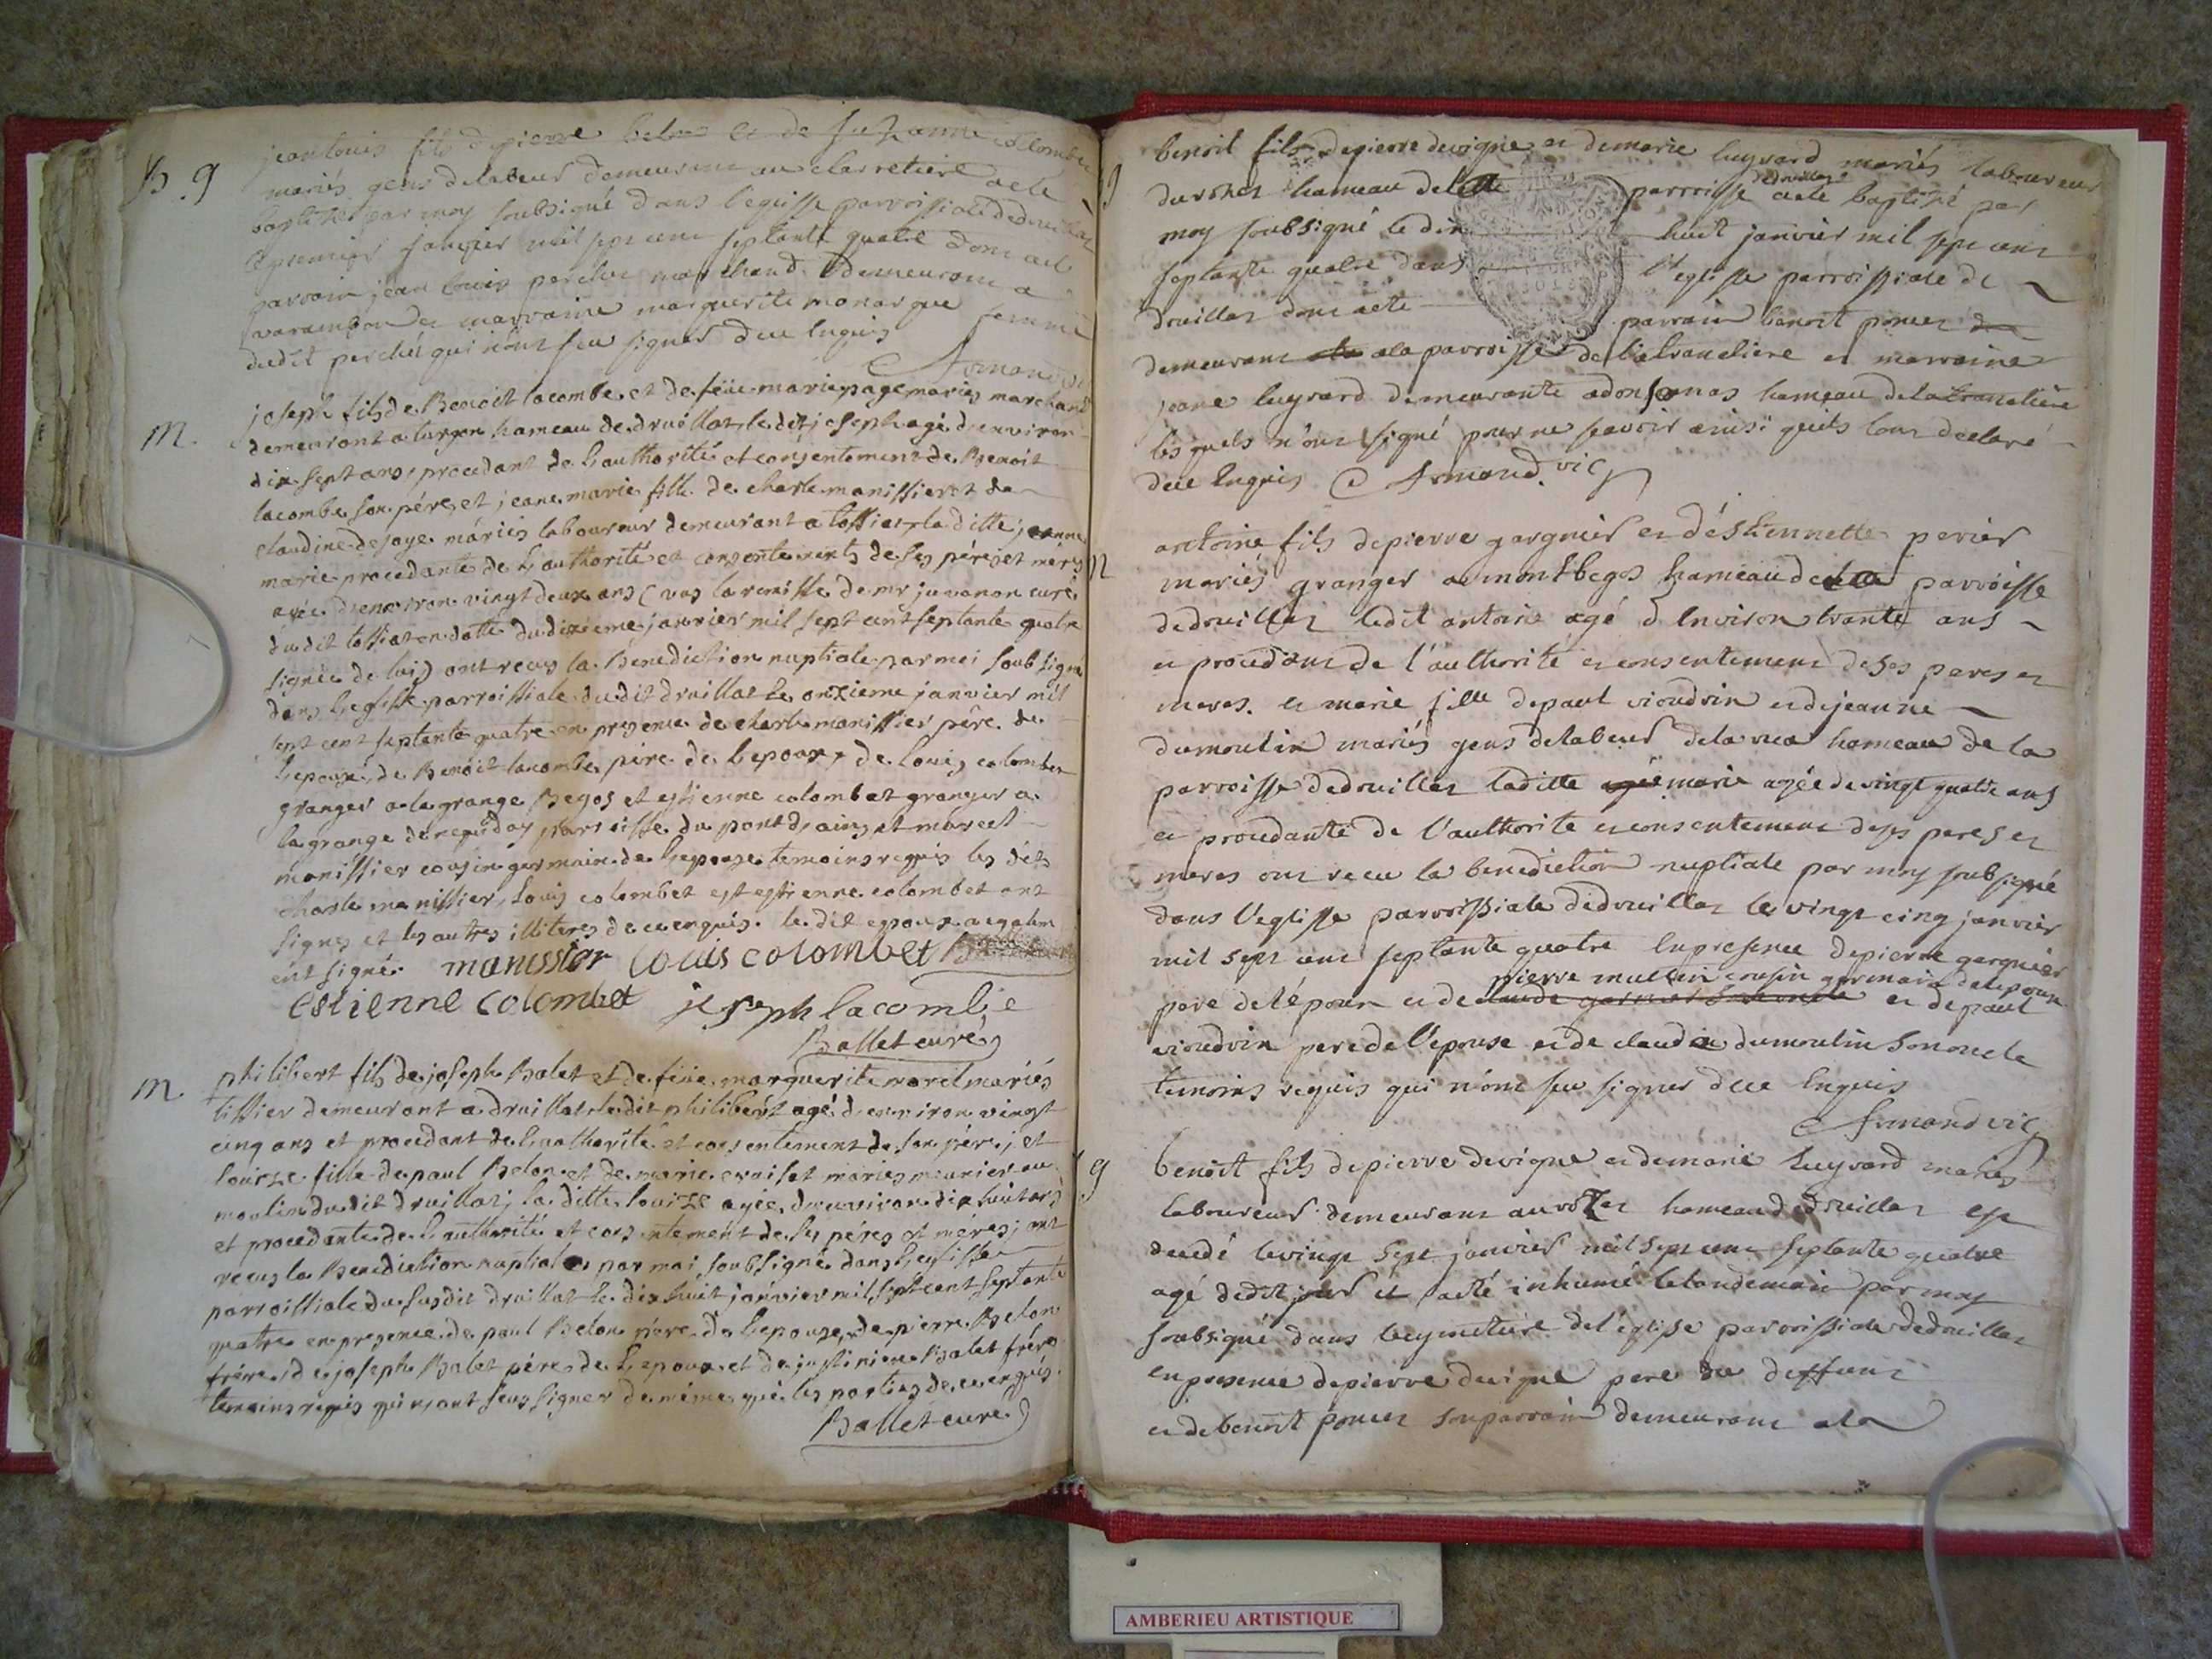 B. g
jean louis fils de pierre belon et de Suzanne Colombet
mariés gens de labeur demeurant au clarretiere a ete
baptisé par moy soubsigné dans l'eglisse parroissiale de druillat
le premier janvier mil sept cent septante quatre dont a ete
parrain jean louis perchet marchand demeurant a
varambon et marraine marguerite monarque femme
dudit perchet qui n'ont seu signer de ce enquis
Armand vic
M.
joseph fils de Benoit lacombe et de feüe marie page mariés marchand
demeurant a turgon hameau de druillat, le dit joseph agé d'environ
dix sept ans, procedant de l'authorité et consentement de Benoit
lacombe son pére, et jeane marie fille de charle manissier et de
claudine dejoye mariés laboureur demeurant a tossiat, la ditte jeanne
marie procedante de l'authorité et consentements de ses pére et mére
agée d'environ vingt deux ans (vus la remisse de mr juvanon curé
du dit tossiat en datte du dixieme janvier mil sept cent septante quatre
signée de lui) ont reçus la Benediction nuptiale par moi soub signé
dans l'eglisse parroissiale du dit druillat le onzieme janvier mil
sept cent septante quatre en presence de charle manissier pére de
l'epouse, de Benoit lacombe pére de l'epoux, de louis colombet
granger a la grange Begos et estienne colombet granger a
la grange de parroisse du pont d'ains, et marcel
manissier cousin germain de l'epouse temoins requis les dits
charle manissier, louis colombet est estienne colombet ont
signes et les autres illiteres de ce enquis. le dit epoux a egalem
ent signé. manissier louis colombet
estienne colombet joseph lacombe
Ballet curé
M.
philibert fils de joseph Balet et de feüe marguerite morel mariés
tissier demeurant a druillat, le dit philibert agé d'environ vingt
cinq ans et procedant de l'authorité et consentement de son pére; et
louize fille de paul Belon et de marie croiset mariés meunier au
moulin du dit druillat; la ditte louize agée d'environ dix huit ans
et procedante de l'authorité et consentement de ses péres et méres; ont
reçus la Benediction nuptiale par moi soubsigné dans l'eglisse
parroissiale du susdit druillat le dix huit janvier mil sept cent septante
quatre en presence de paul Belon pére de l'epouze, de pierre Belon
frére, de joseph Balet pére de l'epoux et de justinien Balet frére
temoins requis qui n'ont seus signer de méme que les parties de ce enquis.
Ballet curé
g
benoit fils de pierre devigne et de marie luyrard mariés laboureur
du roset hameau de cette parroisse de druillat a ete baptisé par
moy soubsigné le dix huit janvier mil sept cent
septante quatre dans l'eglisse parroissiale de
druillat dont a ete parrain benoit poncet
demeurant a la parroisse de la tranclière et marraine
jeane luyrard demeurante a donsonas hameau de la tranclière
lesquels n'ont signé pour ne sçavoir ainsi qu'ils l'ont declaré
de ce enquis Armand vic
M
antoine fils de pierre gargnier et d'éstiennette perier
mariés granger a montbegos hameau de cette parroisse
de druillat ledit antoine agé d'environ trante ans
et procedant de l'authorité et consentement de ses peres et
meres. et marie fille de paul vioudrin et de jeanne
dumoulin mariés gens de labeur de la rua hameau de la
parroisse de druillat laditte marie agée de vingt quatre ans
et procedante de l'authorité et consentement de ses peres et
meres ont reçu la benediction nuptiale par moy soubsigné
dans l'eglisse parroissiale de druillat le vingt cinq janvier
mil sept cent septante quatre en presence de pierre gargnier
pierre mullin cousin germain de l'epoux
pere de l'époux et de et de paul
vioudrin pere de l'épouse et de claude dumoulin son oncle
temoins requis qui n'ont seu signer de ce enquis
Armand vic
g
benoit fils de pierre devigne et de marie luyrard mariés
laboureur demeurant au roset hameau de druillat est
decedé le vingt sept janvier mil sept cent septante quatre
agé de dix jours et a eté inhumé le landemain par moy
soubsigné dans le cymetiere de l'église parroissiale de druillat
en presence de pierre devigne pere du deffunt
et de benoit poncet son parrain demeurant a la
AMBERIEU ARTISTIQUE